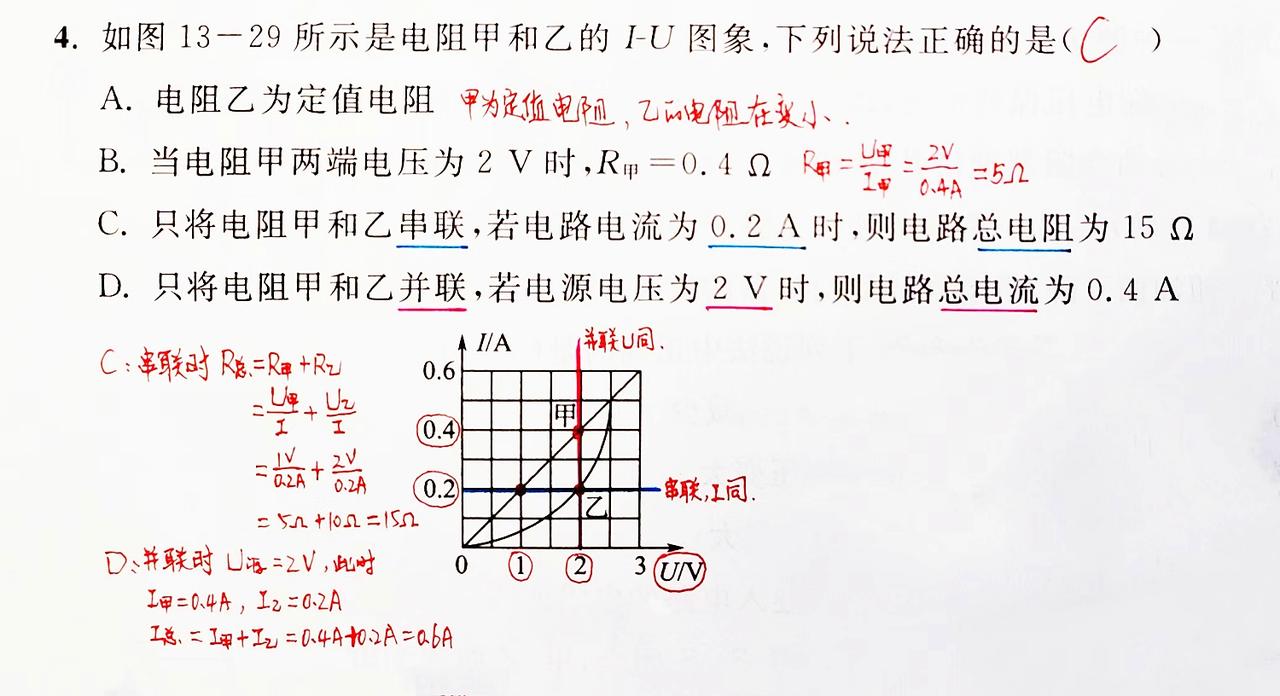 4. 如图 13－29 所示是电阻甲和乙的 I-U 图象,下列说法正确的是( C )
A. 电阻乙为定值电阻 甲为定值电阻,乙的电阻在变小.
B. 当电阻甲两端电压为 2 V 时,R甲=0.4 Ω R甲=U甲/I甲=2V/0.4A=5Ω
C. 只将电阻甲和乙串联,若电路电流为 0.2 A 时,则电路总电阻为 15 Ω
D. 只将电阻甲和乙并联,若电源电压为 2 V 时,则电路总电流为 0.4 A
C:串联时 R总=R甲+R乙
=U甲/I+U乙/I
=1V/0.2A+2V/0.2A
=5Ω+10Ω=15Ω
D:并联时 U源=2V,此时
I甲=0.4A, I乙=0.2A
I总=I甲+I乙=0.4A+0.2A=0.6A
I/A
并联U同.
0.6
甲
0.4
0.2
串联,I同.
乙
0 1 2 3 U/V